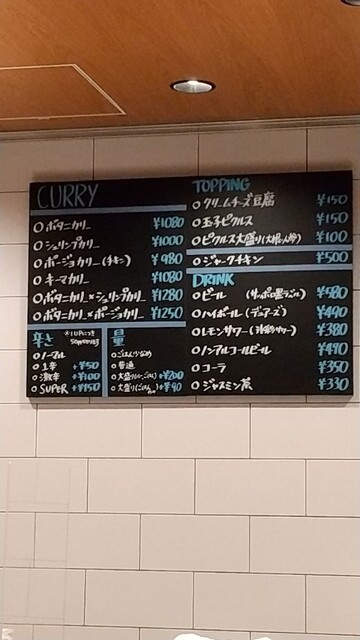 CURRY
○ボタニカリー ¥1080
○シュリンプカリー ¥1000
○ポージョカリー(チキン) ¥980
○キーマカリー ¥1080
○ボタニカリー×シュリンプカリー ¥1280
○ボタニカリー×ポージョカリー ¥1250
辛さ
○ノーマル
○1辛 +¥50
○激辛 +¥100
○SUPER +¥150
量
○ごはん少なめ
○普通
○大盛り +¥200
○大盛り(ごはん +¥90
TOPPING
○クリームチーズ豆腐 ¥150
○玉子ピクルス ¥150
○ピクルス大盛り(大根、人参) ¥100
○ジャークチキン ¥500
DRINK
○ビール (サッポロ黒ラベル) ¥580
○ハイボール (デュワーズ) ¥490
○レモンサワー ¥380
○ノンアルコールビール ¥490
○コーラ ¥350
○ジャスミン茶 ¥330